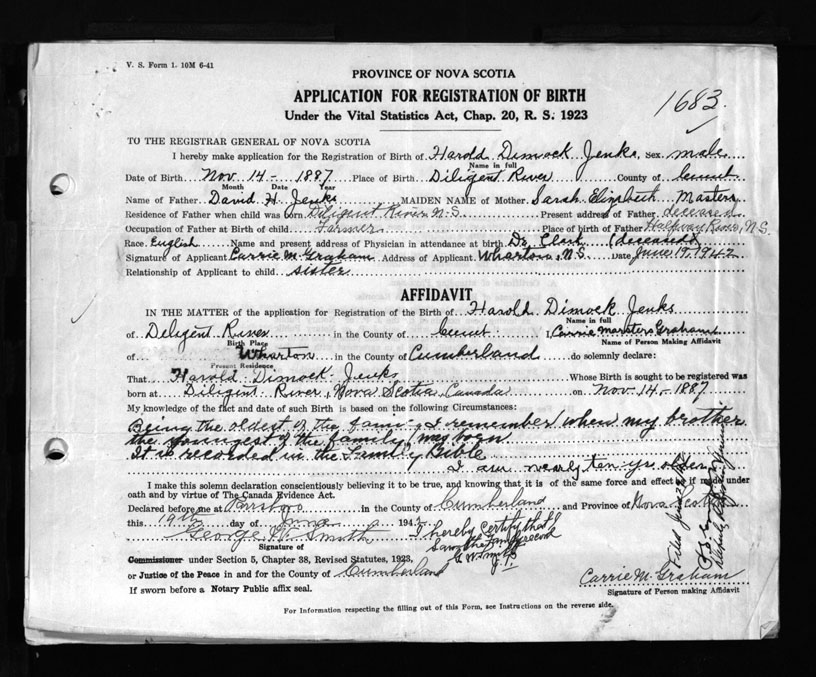 V. S. Form 1. 10M 6-41
PROVINCE OF NOVA SCOTIA
APPLICATION FOR REGISTRATION OF BIRTH
Under the Vital Statistics Act, Chap. 20, R. S. 1923
1683
TO THE REGISTRAR GENERAL OF NOVA SCOTIA
I hereby make application for the Registration of Birth of Harold Dimock Jenks Sex male
Name in full
Date of Birth Nov. 14 - 1887 Place of Birth Diligent River County of Cumb
Month Date Year
Name of Father David H. Jenks MAIDEN NAME of Mother Sarah Elizabeth Masters
Residence of Father when child was born Diligent River N.S. Present address of Father deceased
Occupation of Father at Birth of child Farmer Place of birth of Father Halfway River, N.S.
Race English Name and present address of Physician in attendance at birth Dr. Clark (deceased)
Signature of Applicant Carrie M. Graham Address of Applicant Wharton, N.S. Date June 19, 1942
Relationship of Applicant to child sister
AFFIDAVIT
IN THE MATTER of the application for Registration of the Birth of Harold Dimock Jenks
Name in full
of Deligent River in the County of Cumb, Carrie Marsters Graham
Birth Place Name of Person Making Affidavit
of Wharton in the County of Cumberland do solemnly declare:
Present Residence
That Harold Dimock Jenks Whose Birth is sought to be registered was
born at Diligent River, Nova Scotia, Canada on Nov. 14 - 1887
My knowledge of the fact and date of such Birth is based on the following Circumstances:
Being the oldest of the family, I remember when my brother
the youngest of the family, was born
It is recorded in the Family Bible
I am nearly ten yrs older
I make this solemn declaration conscientiously believing it to be true, and knowing that it is of the same force and effect as if made under
oath and by virtue of The Canada Evidence Act.
Declared before me at Parrsboro in the County of Cumberland and Province of Nova Scotia
this 19th day of June 1942
George W. Smith
I hereby certify that I
Saw the Family record
G W Smith
J. P.
Signature of
Commissioner under Section 5, Chapter 38, Revised Statutes, 1923,
or Justice of the Peace in and for the County of Cumberland
If sworn before a Notary Public affix seal.
Carrie M. Graham
Signature of Person making Affidavit
Filed June
For Information respecting the filling out of this Form, see Instructions on the reverse side.